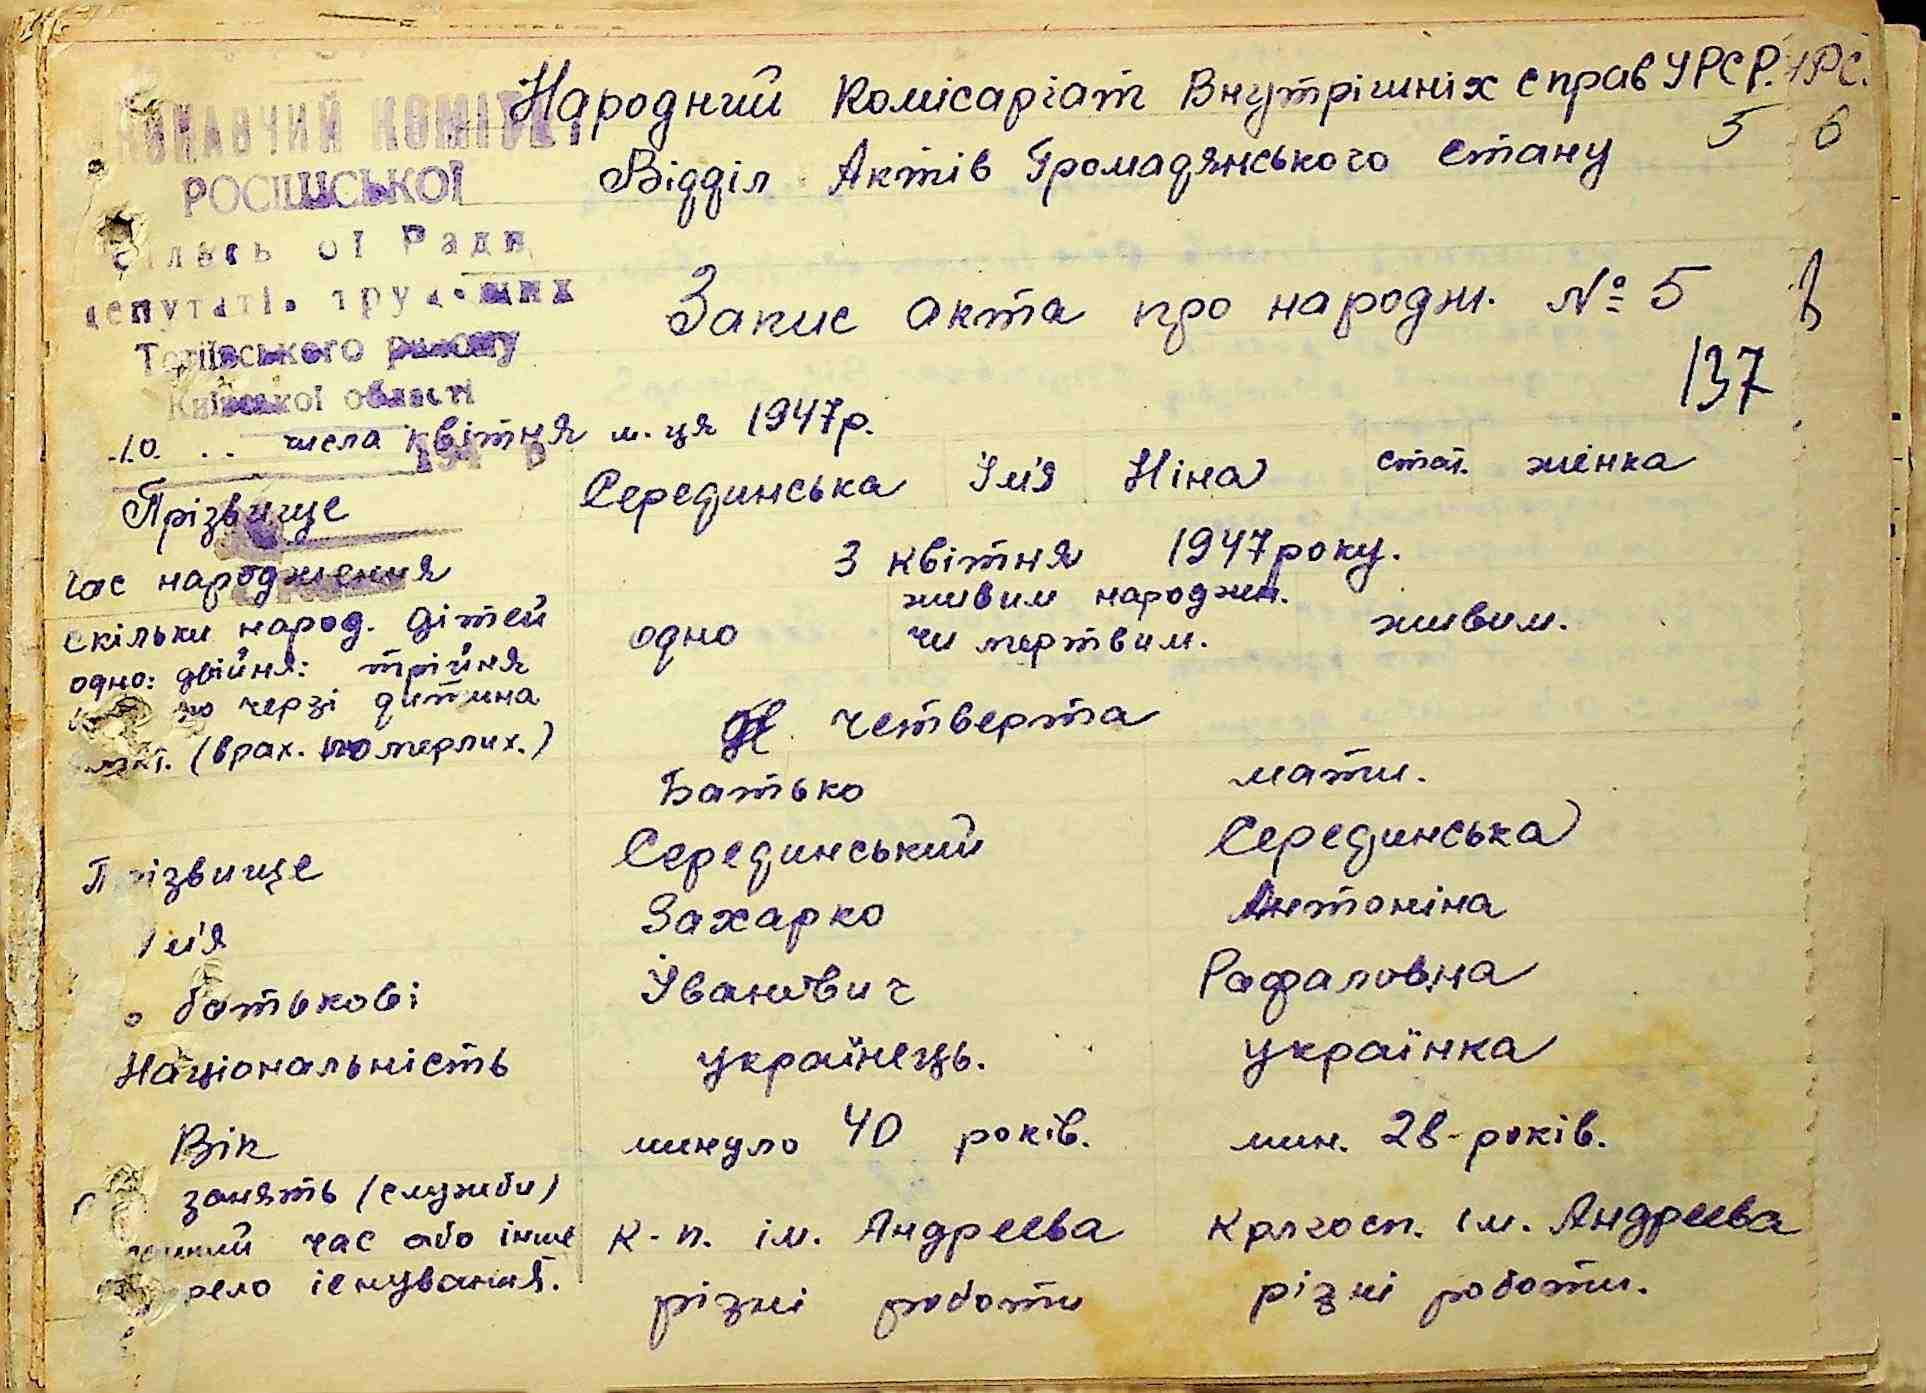 Народний Комісаріат Внутрішніх справ УРСР. УРС.
5 6
Відділ Актів Громадянського стану
ИКОНАВЧИЙ КОМІТЕТ
РОСІШСЬКОЇ
сільсь ої Ради
депутаті. трудящих
району
Київської області
Запис акта про народж. № 5
137
10 .. числа квітня м-ця 1947р.
Прізвище Серединська Ім'я Ніна стат. жінка
Час народження 3 квітня 1947 року.
Скільки народ. дітей одно живим народжен. живим.
одно: двійня: трійня чи мертвим.
по черзі дитина четверта
(врах. померлих.)
Батько мати.
Прізвище Серединський Серединська
Ім'я Захарко Антоніна
о батькові Іванович Рафаловна
Національність українець. українка
Вік минуло 40 років. мин. 28-років.
занять (служби)
час або інше к-п. ім. Андреєва Колгосп. ім. Андреєва
рело існування. різні роботи різні роботи.